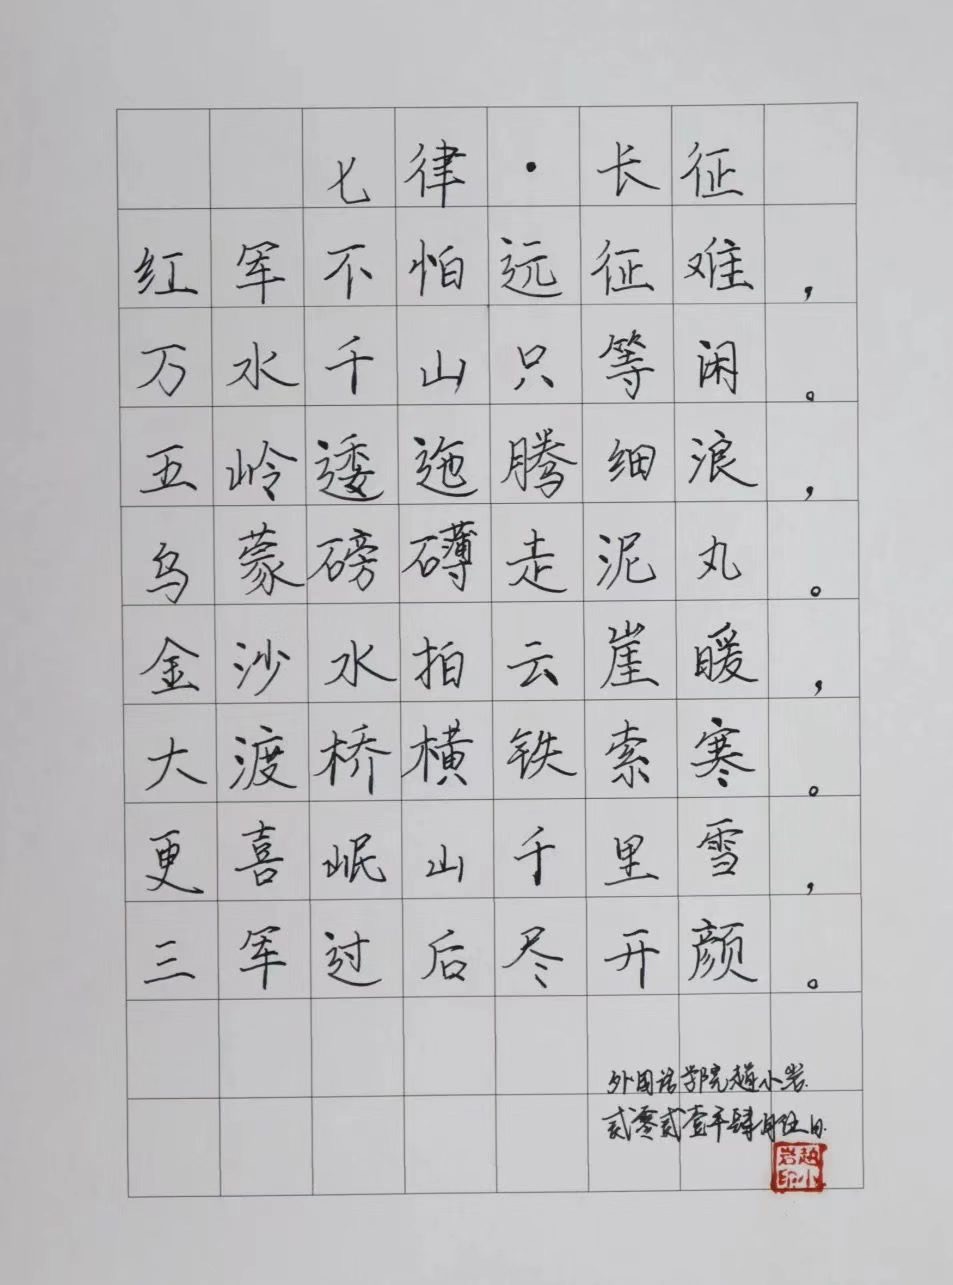 七律·长征
红军不怕远征难，
万水千山只等闲。
五岭逶迤腾细浪，
乌蒙磅礴走泥丸。
金沙水拍云崖暖，
大渡桥横铁索寒。
更喜岷山千里雪，
三军过后尽开颜。
外国语学院赵小岩
贰零贰壹年肆月伍日
赵小
岩印